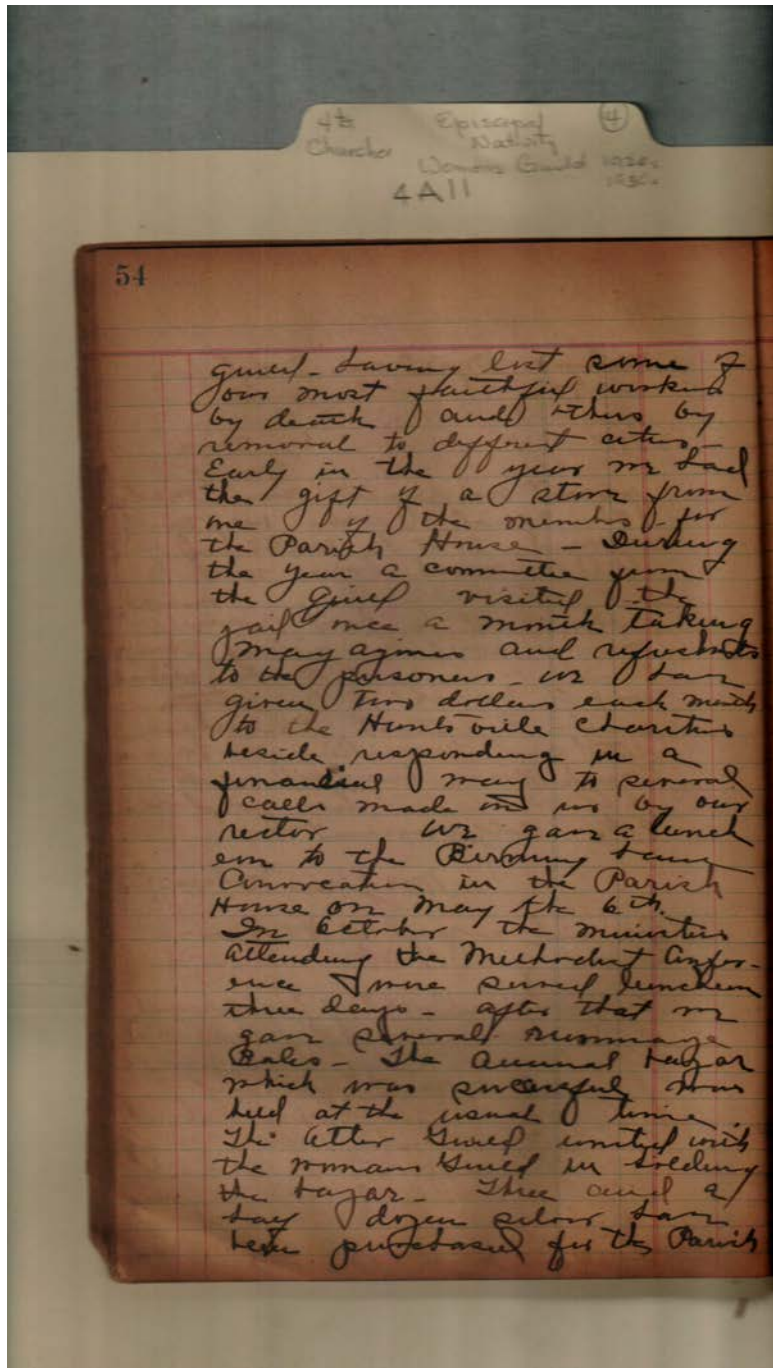 4th Episcopal 4
Churches Nativity
Womens Guild 1920s
1930s
4A11
54
Guild - having lost some of
our most faithful workers
by death and others by
removal to different cities -
Early in the year we had
the gift of a stove from
one of the members for
the Parish House - During
the year a committee from
the Guild visited the
jail once a month taking
magazines and refreshmts
to the prisoners - we have
given two dollars each month
to the Huntsville Charities
beside responding in a
financial way to several
calls made on us by our
rector we gave a lunch
eon to the Birmingham
Convocation in the Parish
House on May the 6th.
In October the ministers
attending the Methodist Confer-
ence were served luncheon
three days - after that we
gave several rummage
Sales - The annual bazar
which was successful was
held at the usual time.
The Alter Guild united with
the womans Guild in holding
the bazar - Three and a
half dozen silver have
been purchased for the Parish